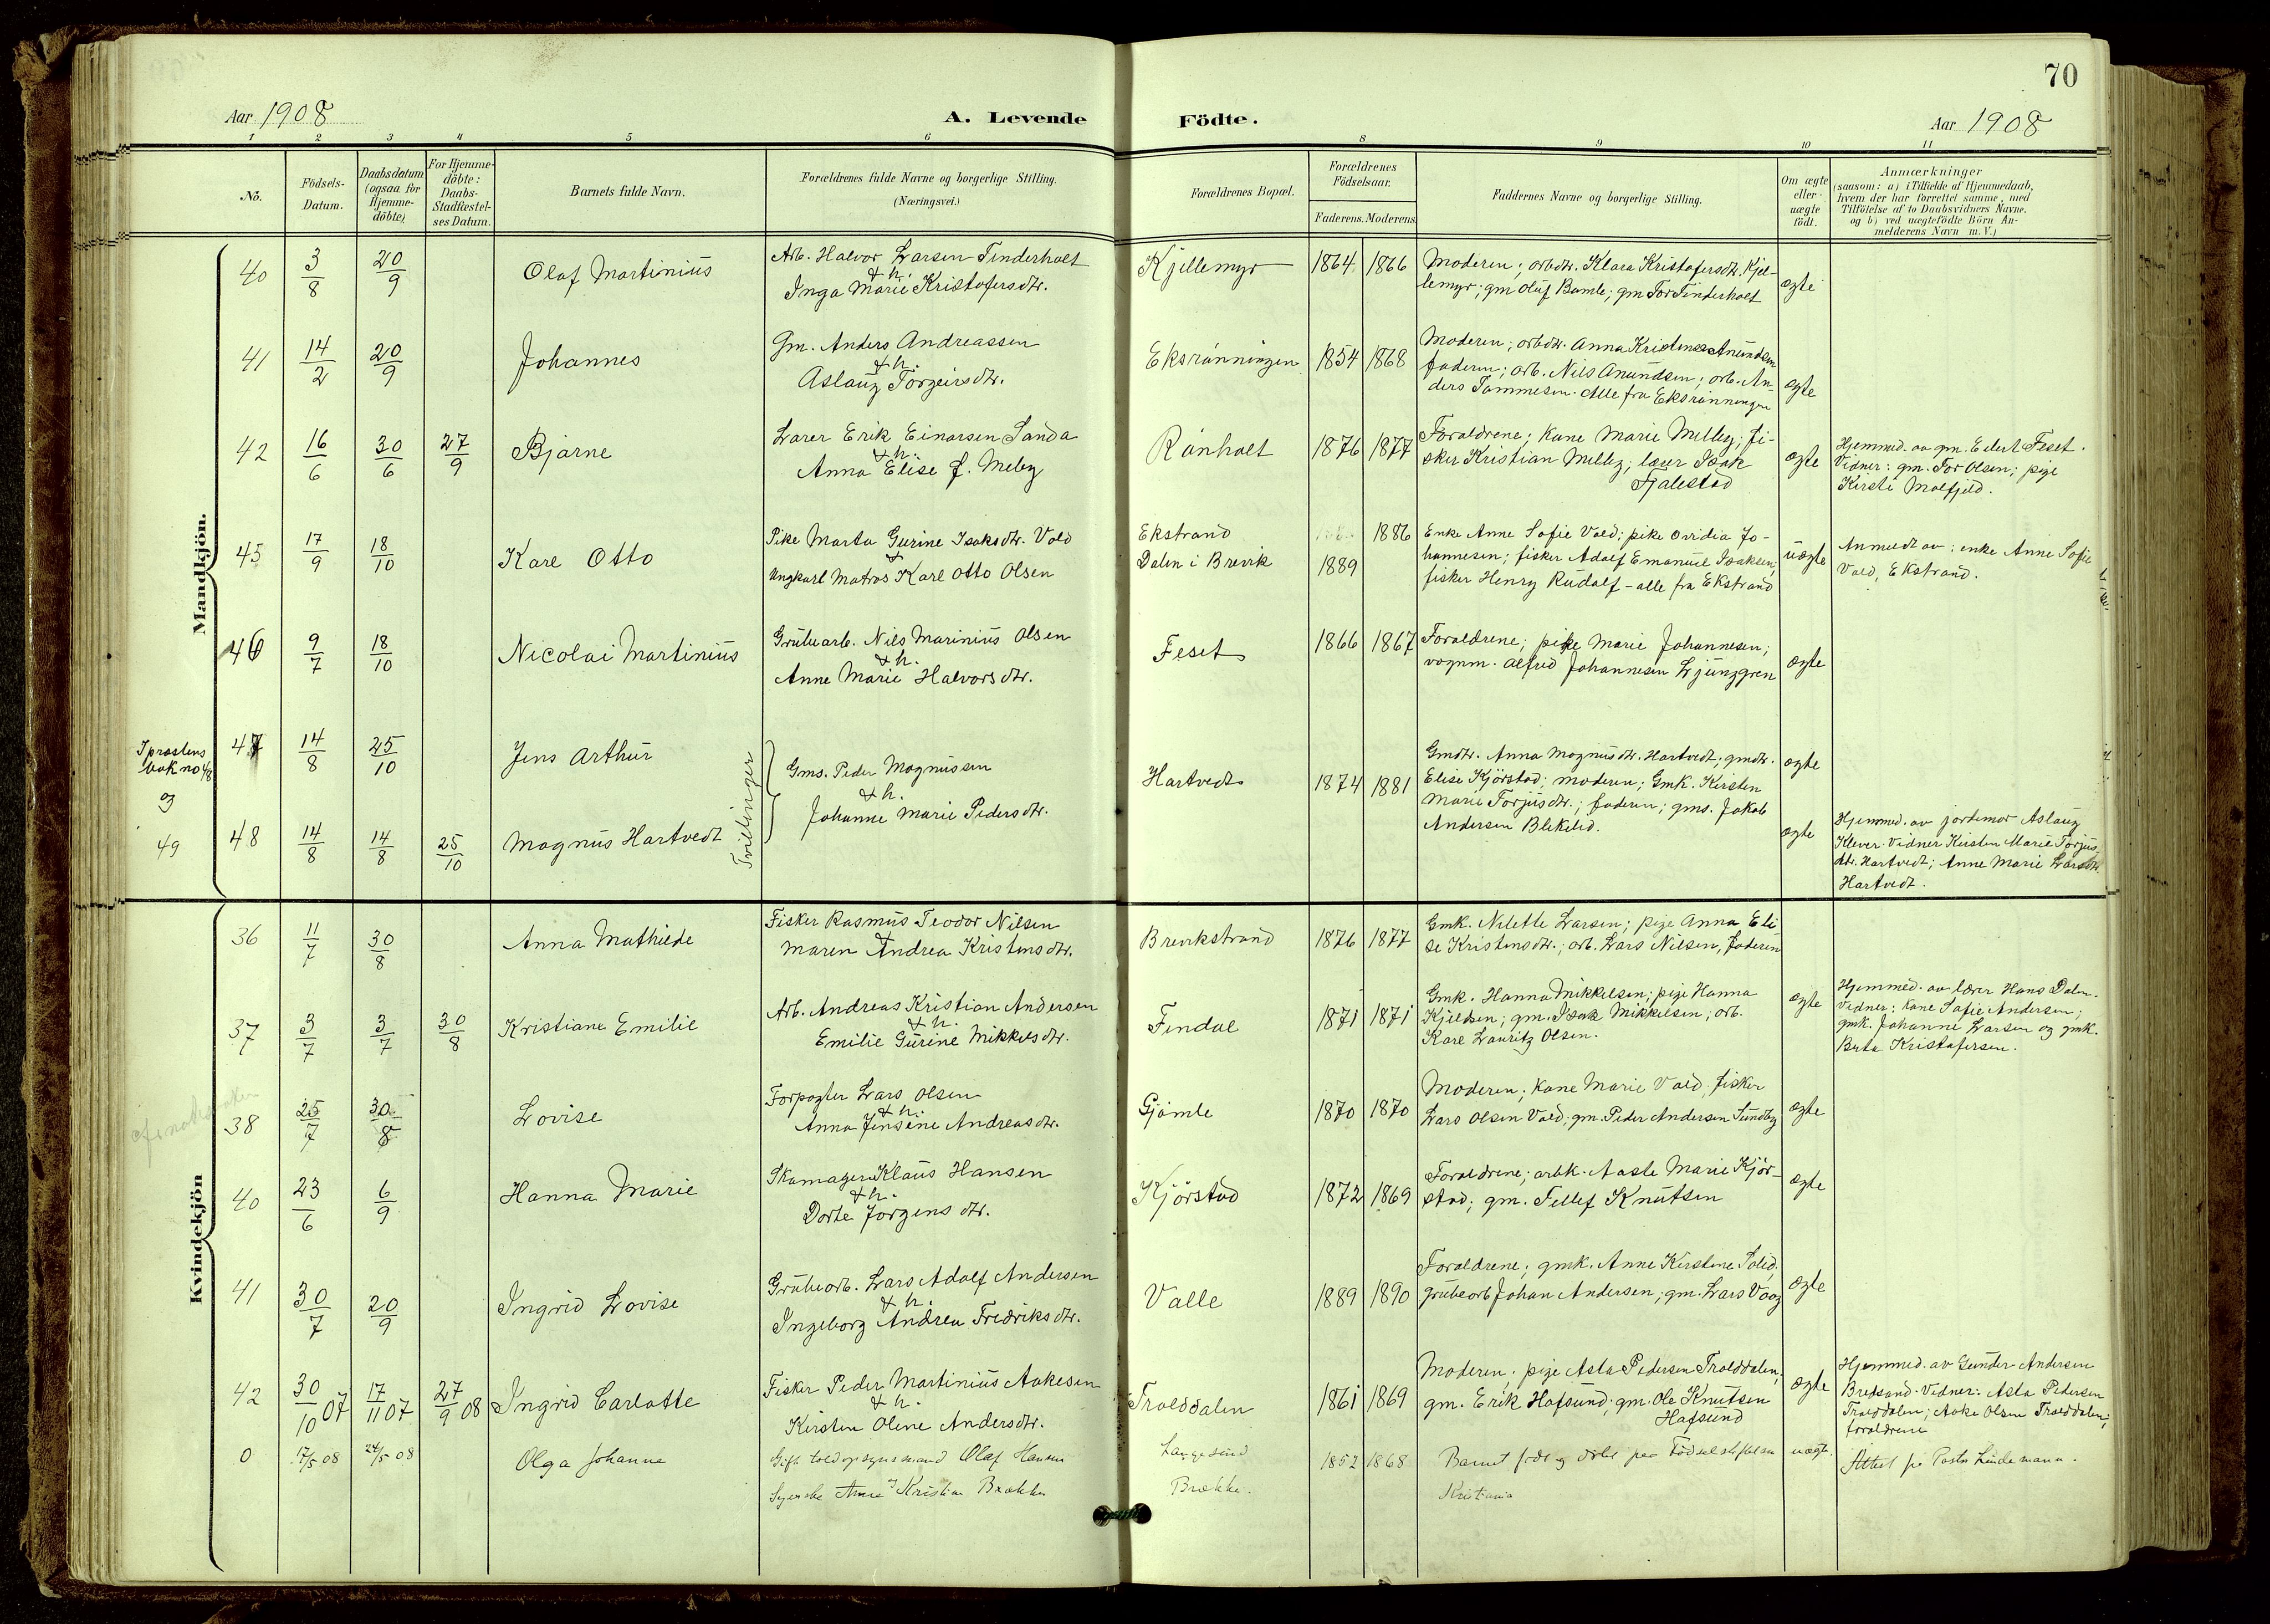 70
Aar 1908
A. Levende Födte.
Aar 1908
1 2 3 4 5 6 8 9 10 11
No.
Födsels-Datum.
Daabsdatum (ogsaa for Hjemme-döbte)
For Hjemme-döbte: Daabs-Stadfæstel-ses Datum.
Barnets fulde Navn.
Forældrenes fulde Navne og borgerlige Stilling.
(Næringsvei.)
Forældrenes Bopæl.
Forældrenes Födselsaar.
Faderens. Moderens.
Faddernes Navne og borgerlige Stilling.
Om ægte eller uægte födt.
Anmærkninger
(saasom: a) i Tilfælde af Hjemmedaab,
hvem der har forrettet samme, med
Tilföielse af to Daabsvidners Navne.
og b) ved uægtefödte Börn An-
melderens Navn m. V.)
Mandkjön.
40 3/8 20/9 Olaf Martinius
Arb. Halvor Larsen Tinderholt
& h.
Inga Marie Kristofersdtr.
Kjellemyr 1864 1866
Moderen; arbdtr. Klara Kristofersdtr. Kjel-
lemyr; gm Oluf Bamle; gm Tor Tinderholt
ægte
41 14/2 20/9 Johannes
Gm. Anders Andreassen
& h.
Aslaug Torgeirsdtr.
Eksrønningen 1854 1868
Moderen; arbdtr. Anna Kristense Anundsen
faderen; arb. Nils Anundsen; arb. An-
ders Tommesen. Alle fra Eksrønningen
ægte
42 16/6 30/6 27/9 Bjarne
Lærer Erik Einarsen Sanda
& h.
Anna Elise f. Melby
Rønholt 1876 1877
Forældrene; kone Marie Melby; fi-
sker Kristian Melby; lærer Isak
Tjalestad
ægte
Hjemmed. av gm. Edert Feset.
Vidner: gm. Tor Olsen; pige
Kirsti Malfjeld.
45 17/9 18/10 Karl Otto
Pike Marta Gurine Isaksdtr. Vold
&
Ungkarl Matros Karl Otto Olsen
Ekstrand
Dalen i Brevik
1886
1889
Enke Anne Sofie Vold; pike Ovidia Jo-
hannesen; fisker Adolf Emanuel Isaksen;
fisker Henry Rudolf - alle fra Ekstrand
uægte
Anmeldt av: enke Anne Sofie
Vold, Ekstrand.
46 9/7 18/10 Nicolai Martinius
Grubearb. Nils Marinius Olsen
& h.
Anne Marie Halvorsdtr.
Feset 1866 1867
Forældrene; pike Marie Johannesen;
vognm. Alfred Johannesen Ljunggren
ægte
I prestens
bok no 48
og
49
47 14/8 25/10 Jens Arthur
48 14/8 14/8 25/10 Magnus Hartvedt
Tvillinger
Gms. Peder Magnussen
& h.
Johanne Marie Pedersdtr.
Hartvedt 1874 1881
Gmdtr. Anna Magnusdtr. Hartvedt; gmdtr.
Elise Kjörstad; moderen; Gmk. Kirsten
Marie Torjusdtr.; faderen; gms. Jakob
Andersen Blekelid.
ægte
ægte
Hjemmed. av jordemor Aslaug
Klever. Vidner Kirsten Marie Torjus-
dtr. Hartvedt; Anne Marie Larsdtr.
Hartvedt.
Kvindekjön
36 11/7 30/8 Anna Mathilde
Fisker Rasmus Teodor Nilsen
&
Maren Andrea Kristensdtr.
Brevikstrand 1876 1877
Gmk. Nilette Larsen; pige Anna Eli-
se Kristensdtr.; arb. Lars Nilsen, faderen
37 3/7 3/7 30/8 Kristiane Emilie
Arb. Andreas Kristian Andersen
& h.
Emilie Gurine Mikkelsdtr.
Findal 1871 1871
Gmk. Hanna Mikkelsen; pige Hanna
Kjeldsen; gm. Isak Mikkelsen; arb.
Karl Lauritz Olsen.
ægte
Hjemmed. av lærer Hans Dalen.
Vidner: Kone Sofie Andersen;
gmk. Johanne Larsen og gmk.
Berta Kristofersen.
38 25/7 30/8 Lovise
Forpagter Lars Olsen
& h.
Anna Jensine Andreasdtr.
Gjømle 1870 1870
Moderen; Kone Marie Vold; fisker
Lars Olsen Vold; gm. Peder Andersen Sundby
ægte
40 23/6 6/9 Hanna Marie
Skomager Klaus Hansen
& h.
Dorte Jörgensdtr.
Kjörstad 1872 1869
Forældrene; arbk. Aaste Marie Kjör-
stad; gm. Tellef Knutsen
ægte
41 30/7 20/9 Ingrid Lovise
Grubearb. Lars Adolf Andersen
& h.
Ingeborg Andrea Fredriksdtr.
Valle 1889 1890
Forældrene; gmk. Anne Kirstine Solid;
grubearb Johan Andersen; gm. Lars Vaag
ægte
42 30/10 07 17/11 07 27/9 08 Ingrid Carlotte
Fisker Peder Martinius Aakesen
& h.
Kirsten Oline Andersdtr.
Trolddalen 1861 1869
Moderen; pige Asta Pedersen Trolddalen;
gm. Erik Hafsund; gm. Ole Knutsen
Hafsund
ægte
Hjemmed. av Gunder Andersen
Bredsand. Vidner: Asta Pedersen
Trolddalen; Aake Olsen Trolddalen;
forældrene
0 17/5 08 24/5 08 Olga Johanne
Gift toldopsynsmand Olaf Hansen
Syerske Anne Kristine Brække
Langesund
Brække.
1852 1868
Barnet födt og döbt paa Födselsstiftelsen
Kristiania
uægte.
Attest fra Pastor Lindemann.